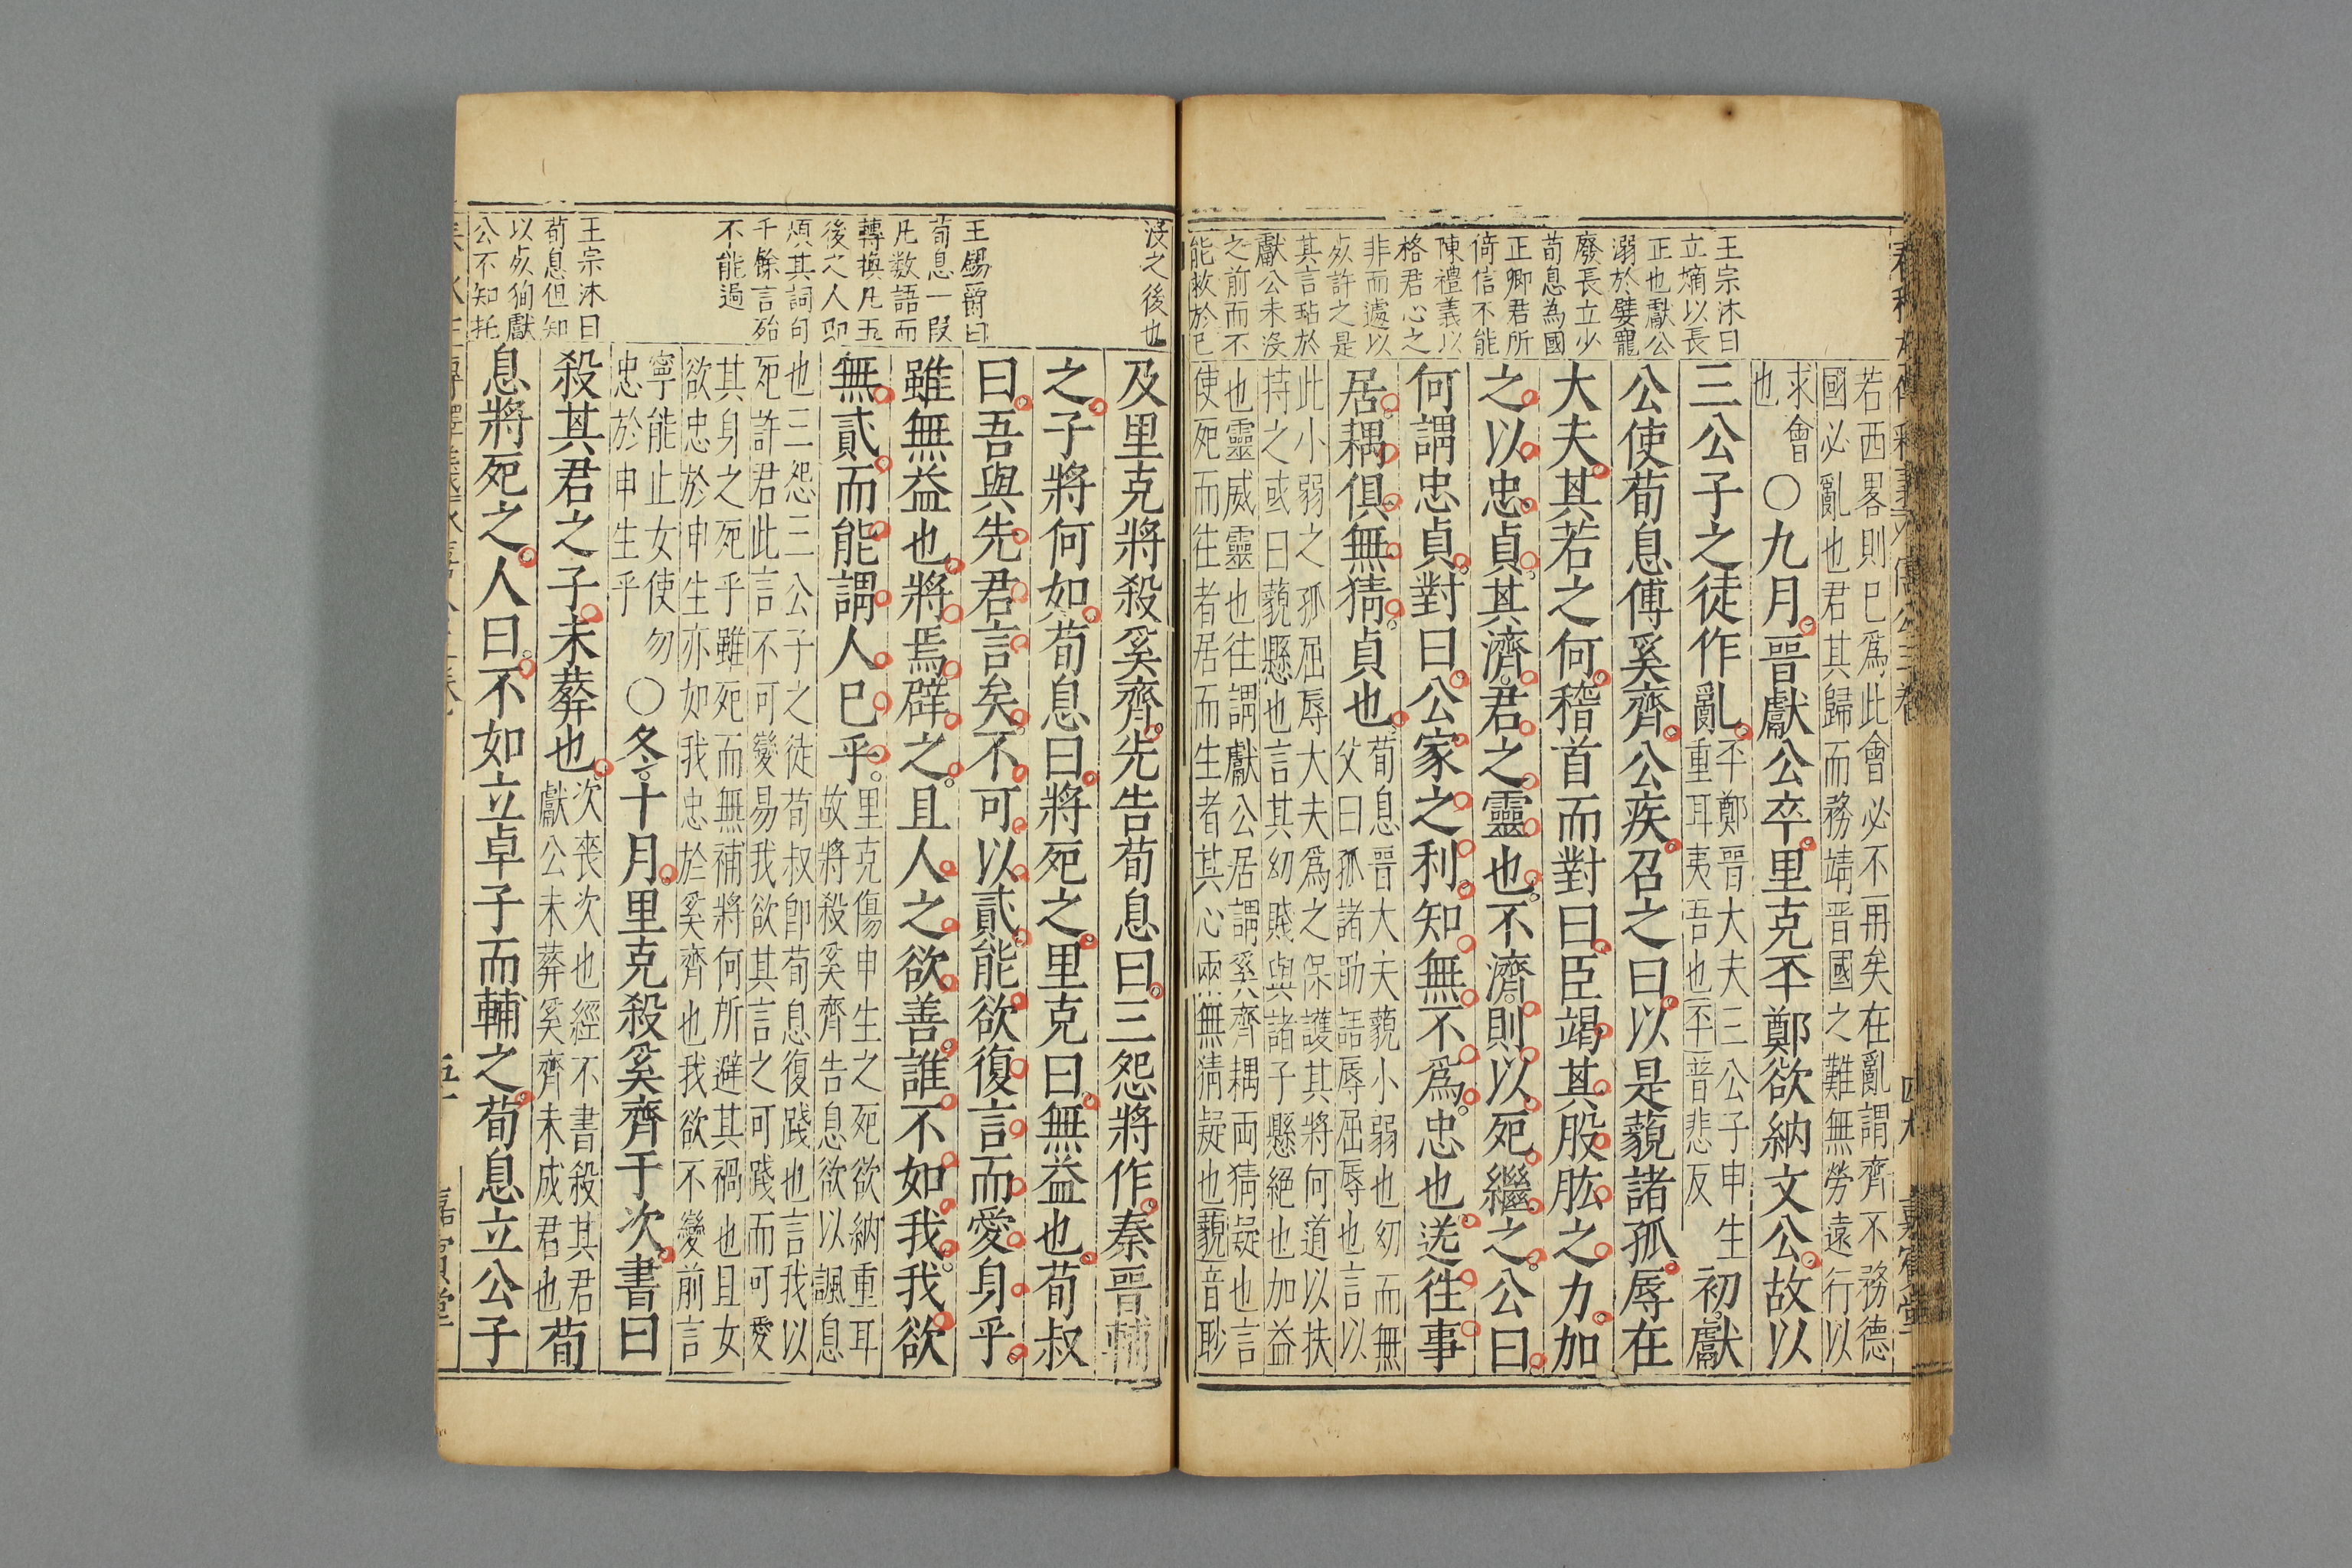 王宗沐曰
立嫡以長
正也獻公
溺於嬖寵
廢長立少
荀息為國
正卿君所
倚信不能
陳禮義以
格君心之
非而遽以
死許之是
其言玷於
獻公未沒
之前而不
能救於已
若西畧則巳爲此會必不再矣在亂謂齊不務德
國必亂也君其歸而務靖晉國之難無勞遠行以
求會
也
〇九月晉獻公卒里克㔻鄭欲納文公故以
三公子之徒作亂
㔻鄭晉大夫三公子申生
重耳夷吾也㔻普悲反
初獻
公使荀息傅奚齊公疾召之曰以是藐諸孤辱在
大夫其若之何稽首而對曰臣竭其股肱之力加
之以忠貞其濟君之靈也不濟則以死繼之公曰
何謂忠貞對曰公家之利知無不爲忠也送往事
居耦俱無猜貞也
荀息晉大夫藐小弱也幼而無
父曰孤諸助語辱屈辱也言以
此小弱之孤屈辱大夫爲之保護其將何道以扶
持之或曰藐懸也言其幼賤與諸子懸絕也加益
也靈威靈也往謂獻公居謂奚齊耦兩猜疑也言
使死而往者居而生者其心兩無猜疑也藐音眇
沒之後也
王錫爵曰
荀息一段
凡数語而
轉換凡五
後之人即
煩其詞句
千餘言殆
不能過
王宗沐曰
荀息但知
以死狥獻
公不知托
及里克將殺奚齊先告荀息曰三怨將作秦晉輔
之子將何如荀息曰將死之里克曰無益也荀叔
曰吾與先君言矣不可以貳能欲復言而愛身乎
雖無益也將焉辟之且人之欲善誰不如我我欲
無貳而能謂人巳乎
里克傷申生之死欲納重耳
故將殺奚齊告息欲以諷息
也三怨三公子之徒荀叔卽荀息復踐也言我以
死許君此言不可變易我欲其言之可踐而可愛
其身之死乎雖死而無補將何所避其禍也且女
欲忠於申生亦如我忠於奚齊也我欲不變前言
寧能止女使勿
忠於申生乎
〇冬十月里克殺奚齊于次書曰
殺其君之子未葬也
次喪次也經不書殺其君
獻公未葬奚齊未成君也
荀
息將死之人曰不如立卓子而輔之荀息立公子